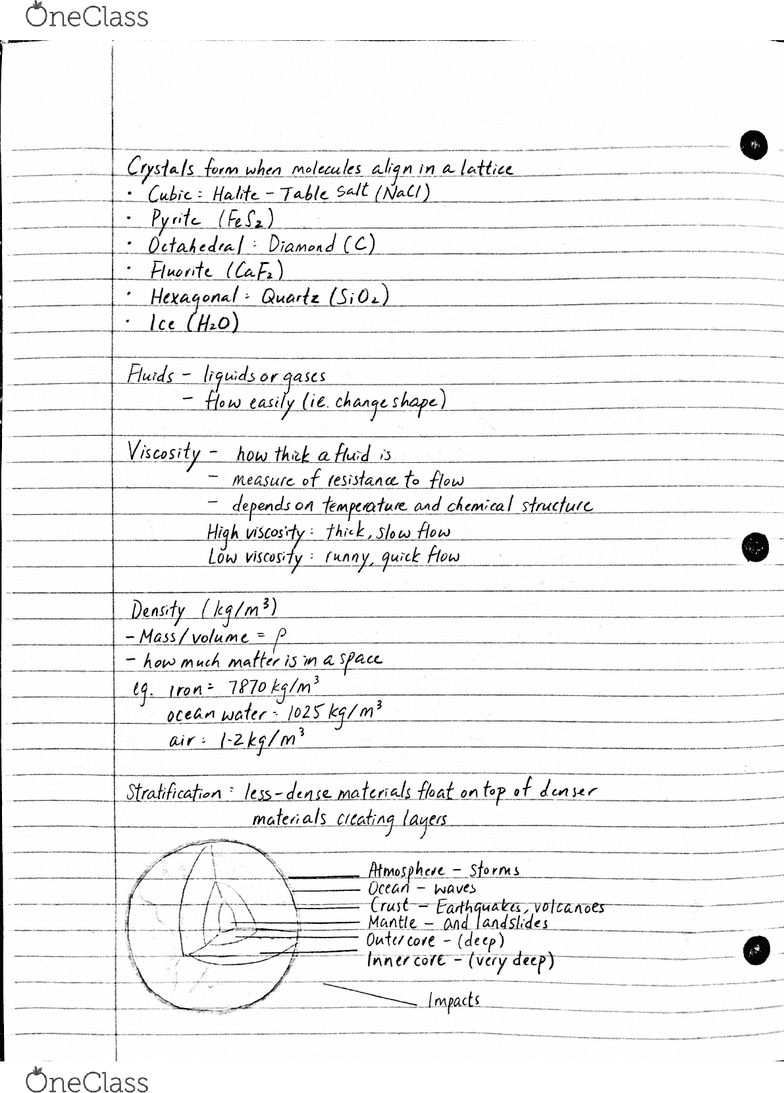 OneClass
Crystals form when molecules align in a lattice
• Cubic: Halite - Table Salt (NaCl)
• Pyrite (FeS₂)
• Octahedral: Diamond (C)
• Fluorite (CaF₂)
• Hexagonal: Quartz (SiO₂)
• Ice (H₂O)
Fluids - liquids or gases
- flow easily (ie. change shape)
Viscosity - how thick a fluid is
- measure of resistance to flow
- depends on temperature and chemical structure
High viscosity: thick, slow flow
Low viscosity: runny, quick flow
Density (kg/m³)
- Mass/volume = ρ
- how much matter is in a space
eg. iron = 7870 kg/m³
ocean water = 1025 kg/m³
air = 1-2 kg/m³
Stratification: less-dense materials float on top of denser
materials creating layers
Atmosphere - Storms
Ocean - waves
Crust - Earthquakes, volcanoes
Mantle - and landslides
Outer core - (deep)
Inner core - (very deep)
Impacts
OneClass